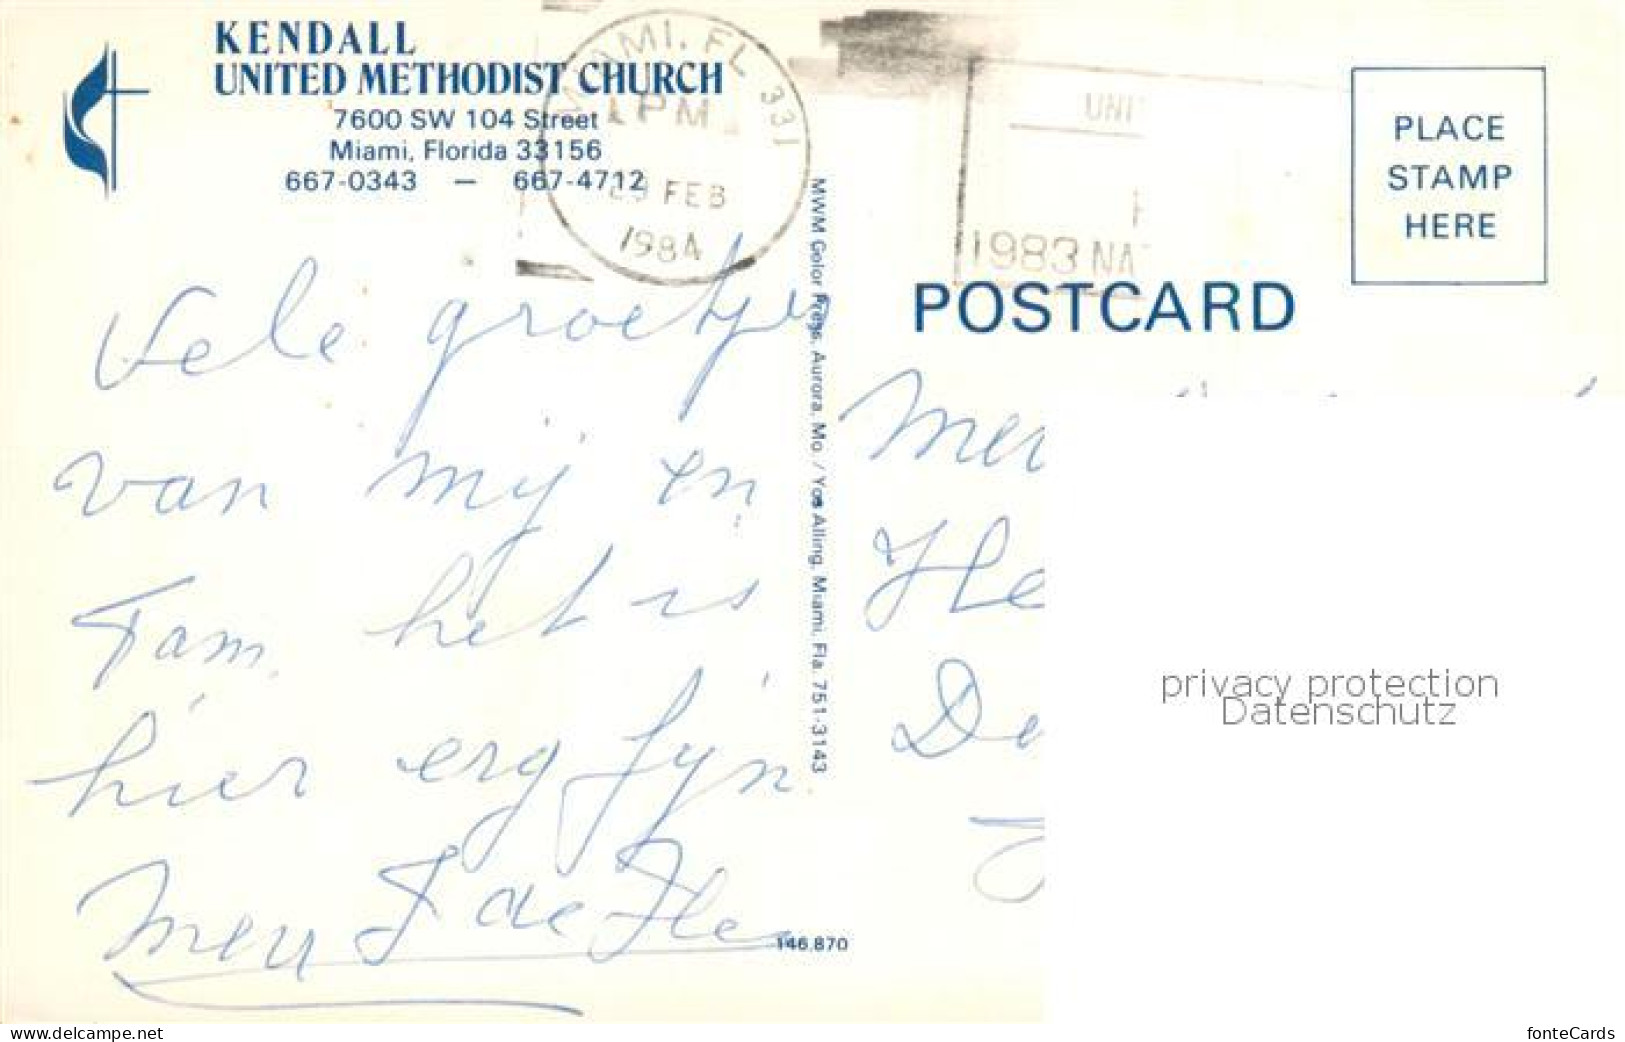 KENDALL
UNITED METHODIST CHURCH
7600 SW 104 Street
Miami, Florida 33156
667-0343 — 667-4712
MIAMI, FL 331
1 PM
FEB
1984
UNI
1983 NA
PLACE
STAMP
HERE
POSTCARD
MWM Color Press, Aurora, Mo. / Yos Alling, Miami, Fla. 751-3143
Vele groetjes
van mij en
Fam. het is
hier erg fijn.
Mevr J de He
Mevr
He
De
146,870
privacy protection
Datenschutz
www.delcampe.net
fonteCards